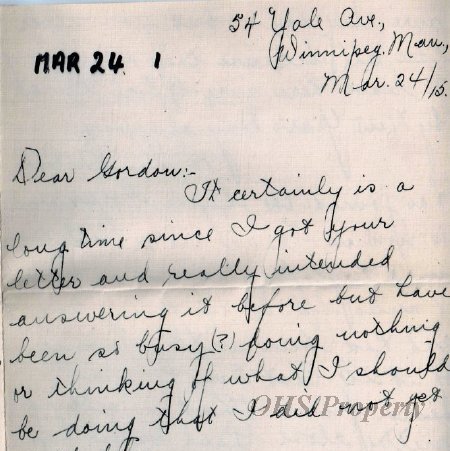 54 Yale Ave.,
Winnipeg. Man.,
MAR 24 1
Mar. 24/15.
Dear Gordon:-
It certainly is a
long time since I got your
letter and really intended
answering it before but have
been so busy (?) doing nothing
or thinking of what I should
be doing that I did not get
OHS Property